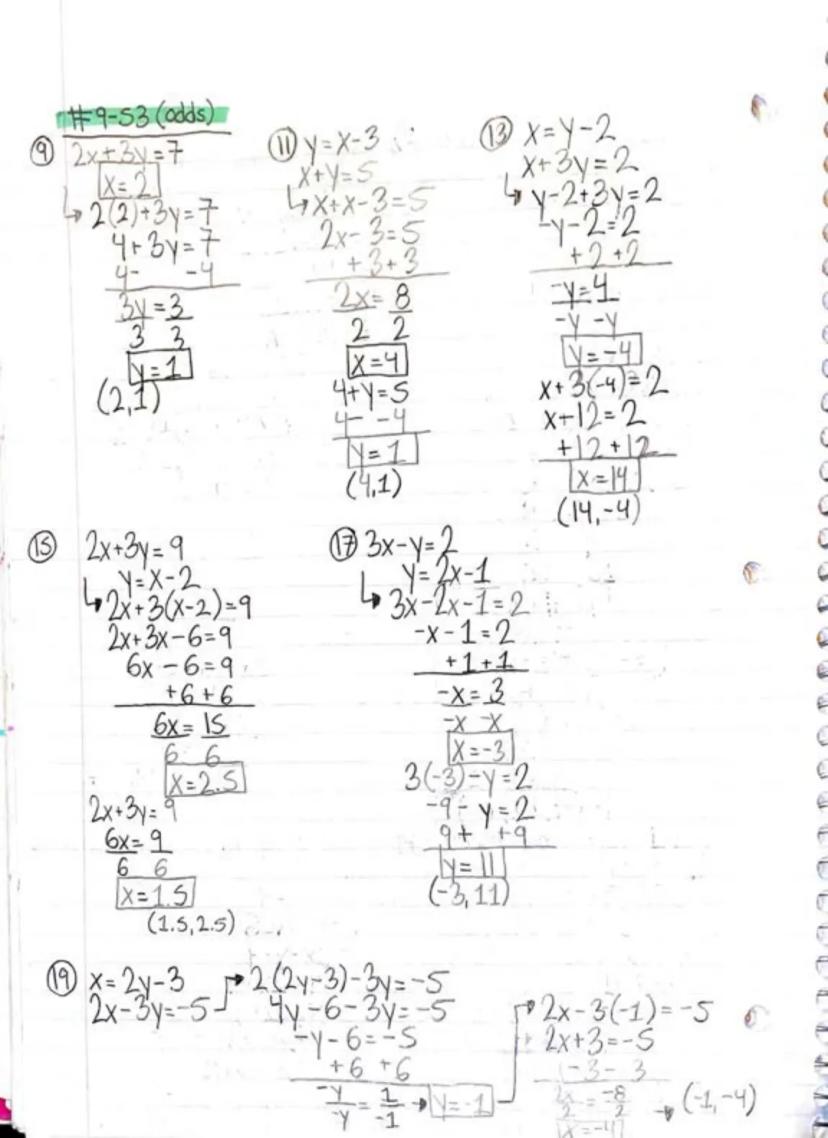 #9-53 (odds)
⑨ 2x+3y=7
x=2
↳ 2(2)+3y=7
4+3y=7
4- -4
3y=3
3 3
y=1
(2,1)
⑪ y=x-3
x+y=5
↳x+x-3=5
2x-3=5
+3+3
2x=8
2 2
x=4
4+y=5
4- -4
y=1
(4,1)
⑬ x=y-2
x+3y=2
↳ y-2+3y=2
-y-2=2
+2+2
-y=4
-y -y
y=-4
x+3(-4)=2
x-12=2
+12+12
x=14
(14,-4)
⑮ 2x+3y=9
y=x-2
↳2x+3(x-2)=9
2x+3x-6=9
6x-6=9
+6+6
6x=15
6 6
x=2.5
2x+3y=9
6x=9
6 6
x=1.5
(1.5,2.5)
⑰ 3x-y=2
y=2x-1
↳ 3x-2x-1=2
-x-1=2
+1+1
-x=3
-x -x
x=-3
3(-3)-y=2
-9-y=2
9+ +9
y=11
(-3,11)
⑲ x=2y-3
2x-3y=-5
→2(2y-3)-3y=-5
4y-6-3y=-5
-y-6=-5
+6 +6
-y = 1 → y=-1
-y -1
→2x-3(-1)=-5
2x+3=-5
-3-3
2x=-8
2 2
x=-4
→ (-1,-4)